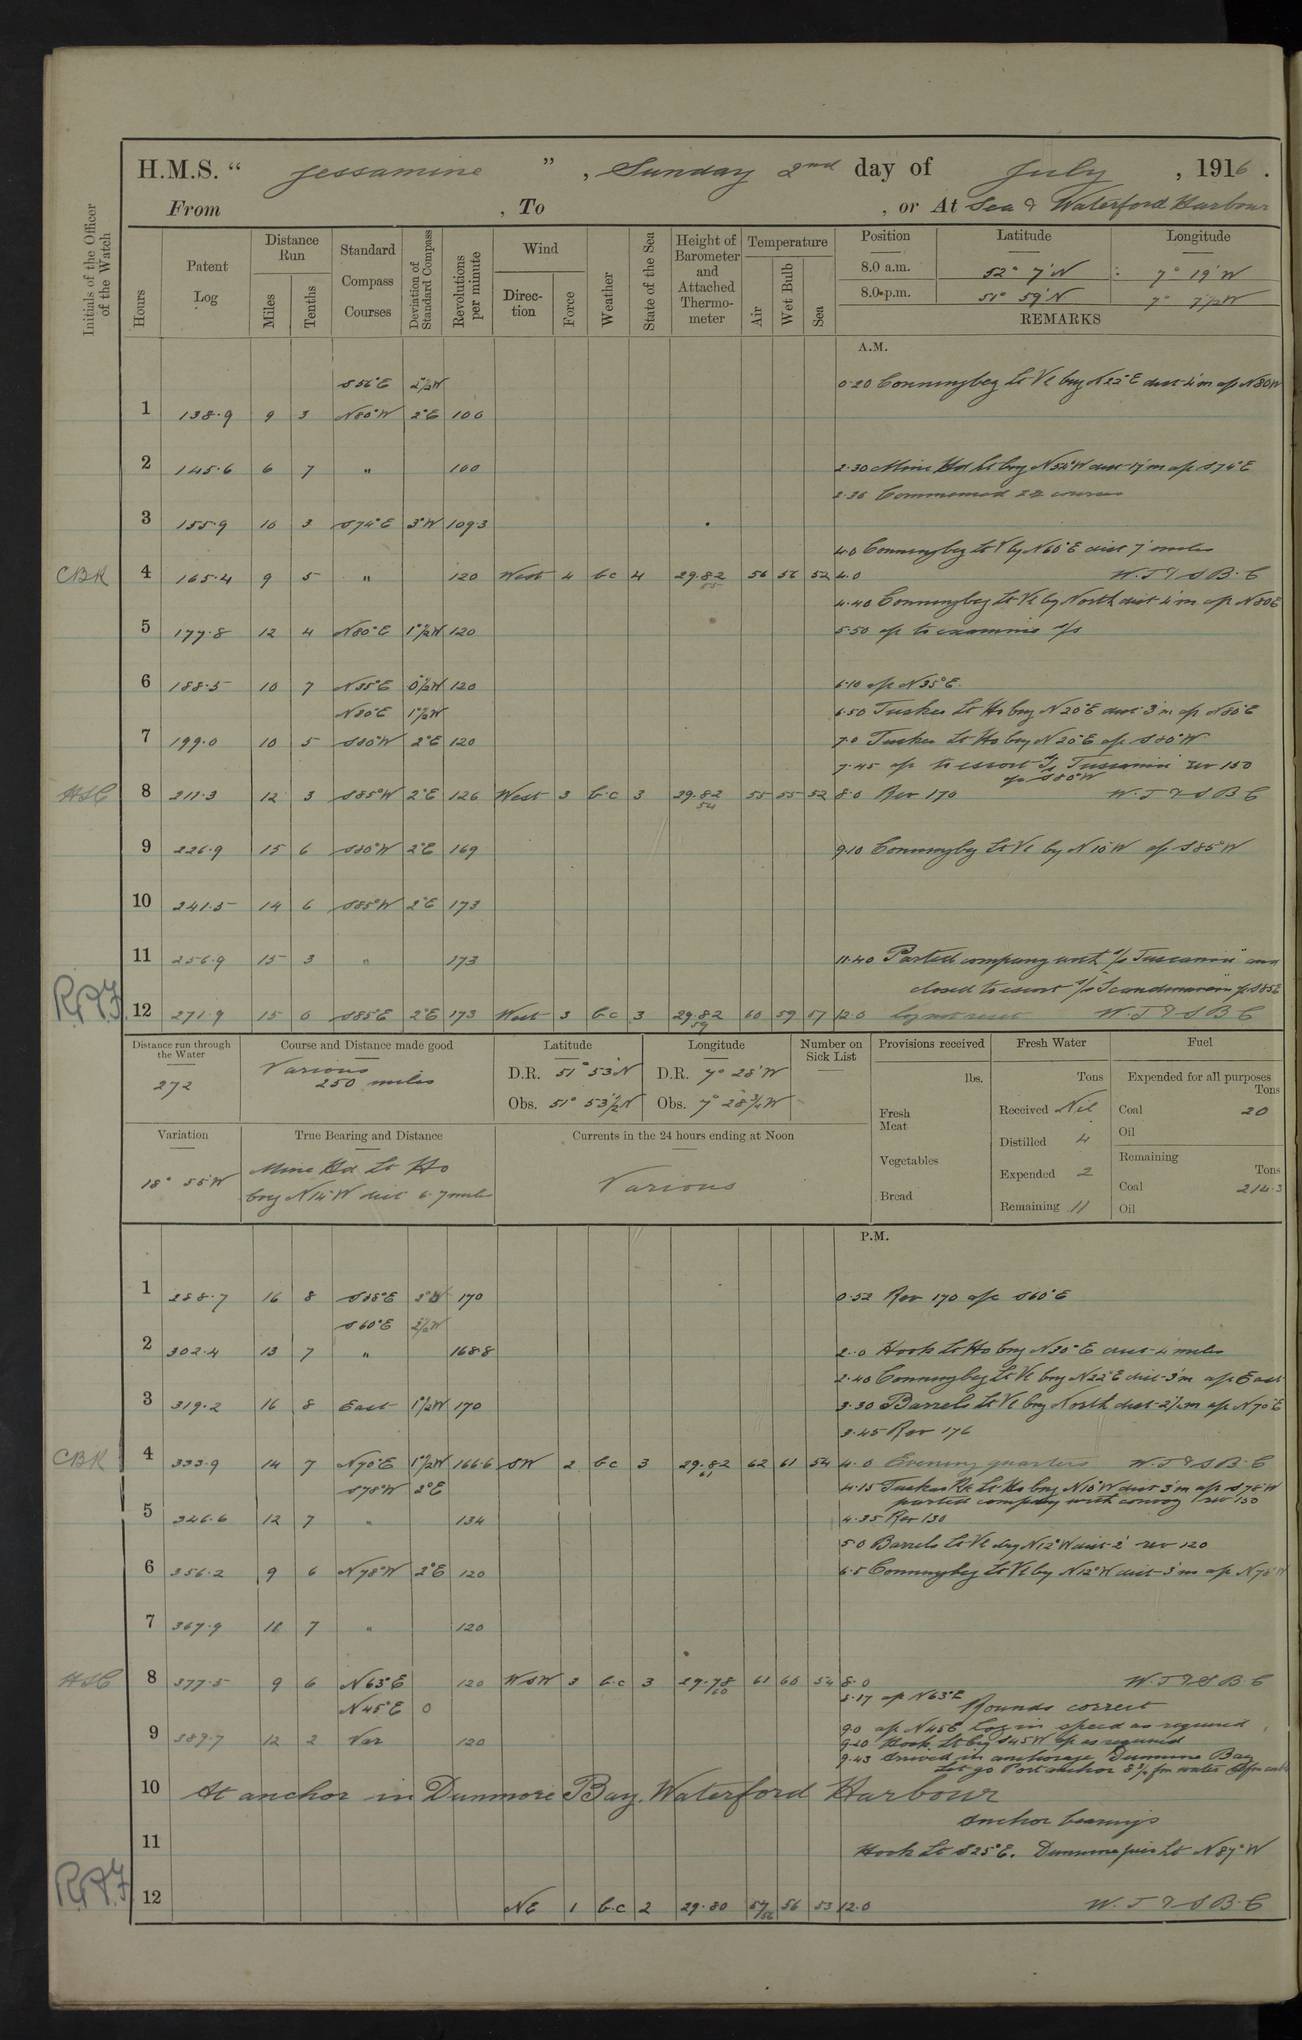 H.M.S. “ Jessamine ” , Sunday 2nd day of July , 1916 .
From , To , or At Sea & Waterford Harbour
Initials of the Officer of the Watch
Hours
Patent Log
Distance Run
Miles
Tenths
Standard Compass Courses
Deviation of Standard Compass
Revolutions per minute
Wind
Direction
Force
Weather
State of the Sea
Height of Barometer and Attached Thermometer
Temperature
Air
Wet Bulb
Sea
Position Latitude Longitude
8.0 a.m. 52° 7' N 7° 19' W
8.0 p.m. 51° 59' N 7° 7½ W
REMARKS
A.M.
S56°E 2½W 0.20 Conningbeg Lt Vl brg N22°E dist 4'm a/c N80W
1 138.9 9 3 N80°W 2°E 100
2 145.6 6 7 " 100 2.30 Mine Hd Lt brg N56°W dist 17'm a/c S74°E
2.36 Commenced courses
3 155.9 10 3 S74°E 3°W 109.3
4.0 Conningbeg Lt V by N60°E dist 7 miles
CBK 4 165.4 9 5 " 120 West 4 bc 4 29.82 55 56 56 52 4.0 W.T & S B.C
4.40 Conningbeg Lt Vl by North dist 4'm a/c N80E
5 177.8 12 4 N80°E 1½W 120 5.50 a/c to examine s/s
6 188.5 10 7 N35°E 0½W 120 6.10 a/c N35°E.
N80°E 1½W 6.50 Tuskar Lt Ho brg N20°E dist 3'm a/c N80°E
7 199.0 10 5 S80°W 2°E 120 7.0 Tuskar Lt Ho brg N20°E a/c S80°W
7.45 a/c to escort s/s Tuscania rev 150
a/c S80°W
HSC 8 211.3 12 3 S85°W 2°E 126 West 3 b.c 3 29.82 54 55 55 52 8.0 Rev 170 W.T & S B C
9 226.9 15 6 S80°W 2°E 169 9.10 Conningbeg Lt Vl by N10°W a/c S85°W
10 241.5 14 6 S85°W 2°E 173
11 256.9 15 3 " 173 11.40 Parted company with s/s Tuscania and
closed to escort s/s Scandinavian a/c S85E
R.A.J. 12 271.9 15 0 S85E 2°E 173 West 3 b.c 3 29.82 59 60 59 57 12.0 W.T & S B C
Distance run through the Water
272
Course and Distance made good
Various
250 miles
Latitude
D.R. 51° 53' N
Obs. 51° 53½ N
Longitude
D.R. 7° 28' W
Obs. 7° 28¾ W
Number on Sick List
Provisions received
lbs.
Fresh Meat
Vegetables
Bread
Fresh Water
Tons
Received Nil
Distilled 4
Expended 2
Remaining 11
Fuel
Expended for all purposes
Tons
Coal 20
Oil
Remaining
Tons
Coal 214.3
Oil
Variation
18° 55'W
True Bearing and Distance
Mine Hd Lt Ho
brg N14°W dist 6.7 miles
Currents in the 24 hours ending at Noon
Various
P.M.
1 288.7 16 8 S85°E 2°W 170 0.52 Rev 170 a/c S60°E
S60°E 2½W
2 302.4 13 7 " 168.8 2.0 Hook Lt Ho brg N30°E dist 4 miles
2.40 Conningbeg Lt Vl brg N22°E dist 3'm a/c East
3 319.2 16 8 East 1½W 170 3.30 Barrels Lt Vl brg North dist 2½m a/c N70°E
3.45 Rev 176
CBK 4 333.9 14 7 N70°E 1½W 166.6 SW 2 bc 3 29.82 61 62 61 54 4.0 Evening quarters W.T & S B.C
S78°W 2°E 4.15 Tuskar Rk Lt Ho brg N10°W dist 3'm a/c S78°W
parted company with convoy rev 150
5 346.6 12 7 " 134 4.35 Rev 130
5.0 Barrels Lt Vl brg N12°W dist 2' rev 120
6 356.2 9 6 N78°W 2°E 120 6.5 Conningbeg Lt Vl by N12°W dist 3'm a/c N78°W
7 367.9 11 7 " 120
HSC 8 377.5 9 6 N63°E 120 WSW 3 b.c 3 29.78 60 61 60 54 8.0 W.T & S B C
N45°E 0 8.17 a/c N63°E Rounds correct
9.0 a/c N45E Log in speed as required
9 389.7 12 2 Var 120 9.20 Hook Lt brg S45W a/c as required
9.43 Arrived in anchorage Dunmore Bay
Let go Port anchor 8½ fm water
10 At anchor in Dunmore Bay. Waterford Harbour
Anchor bearings
11 Hook Lt S25°E. Dunmore pier Lt N87°W
R.A.J. 12 NE 1 b.c 2 29.80 57/56 56 53 12.0 W.T & S B.C